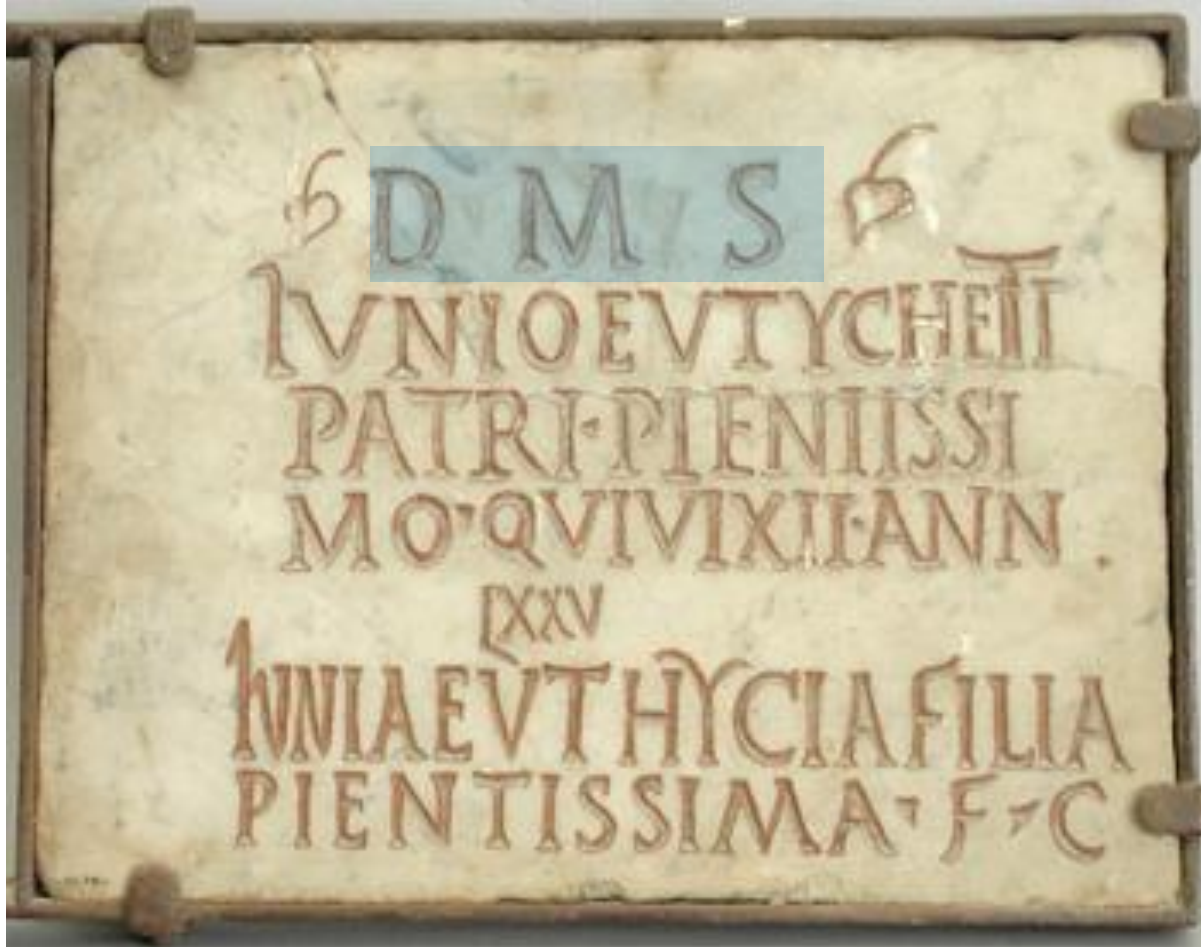 D M S
IVNIO EVTYCHETI
PATRI · PIENTISSI
MO · QVI VIXIT · ANN .
LXXV
IVNIA EVTHYCIA FILIA
PIENTISSIMA · F · C